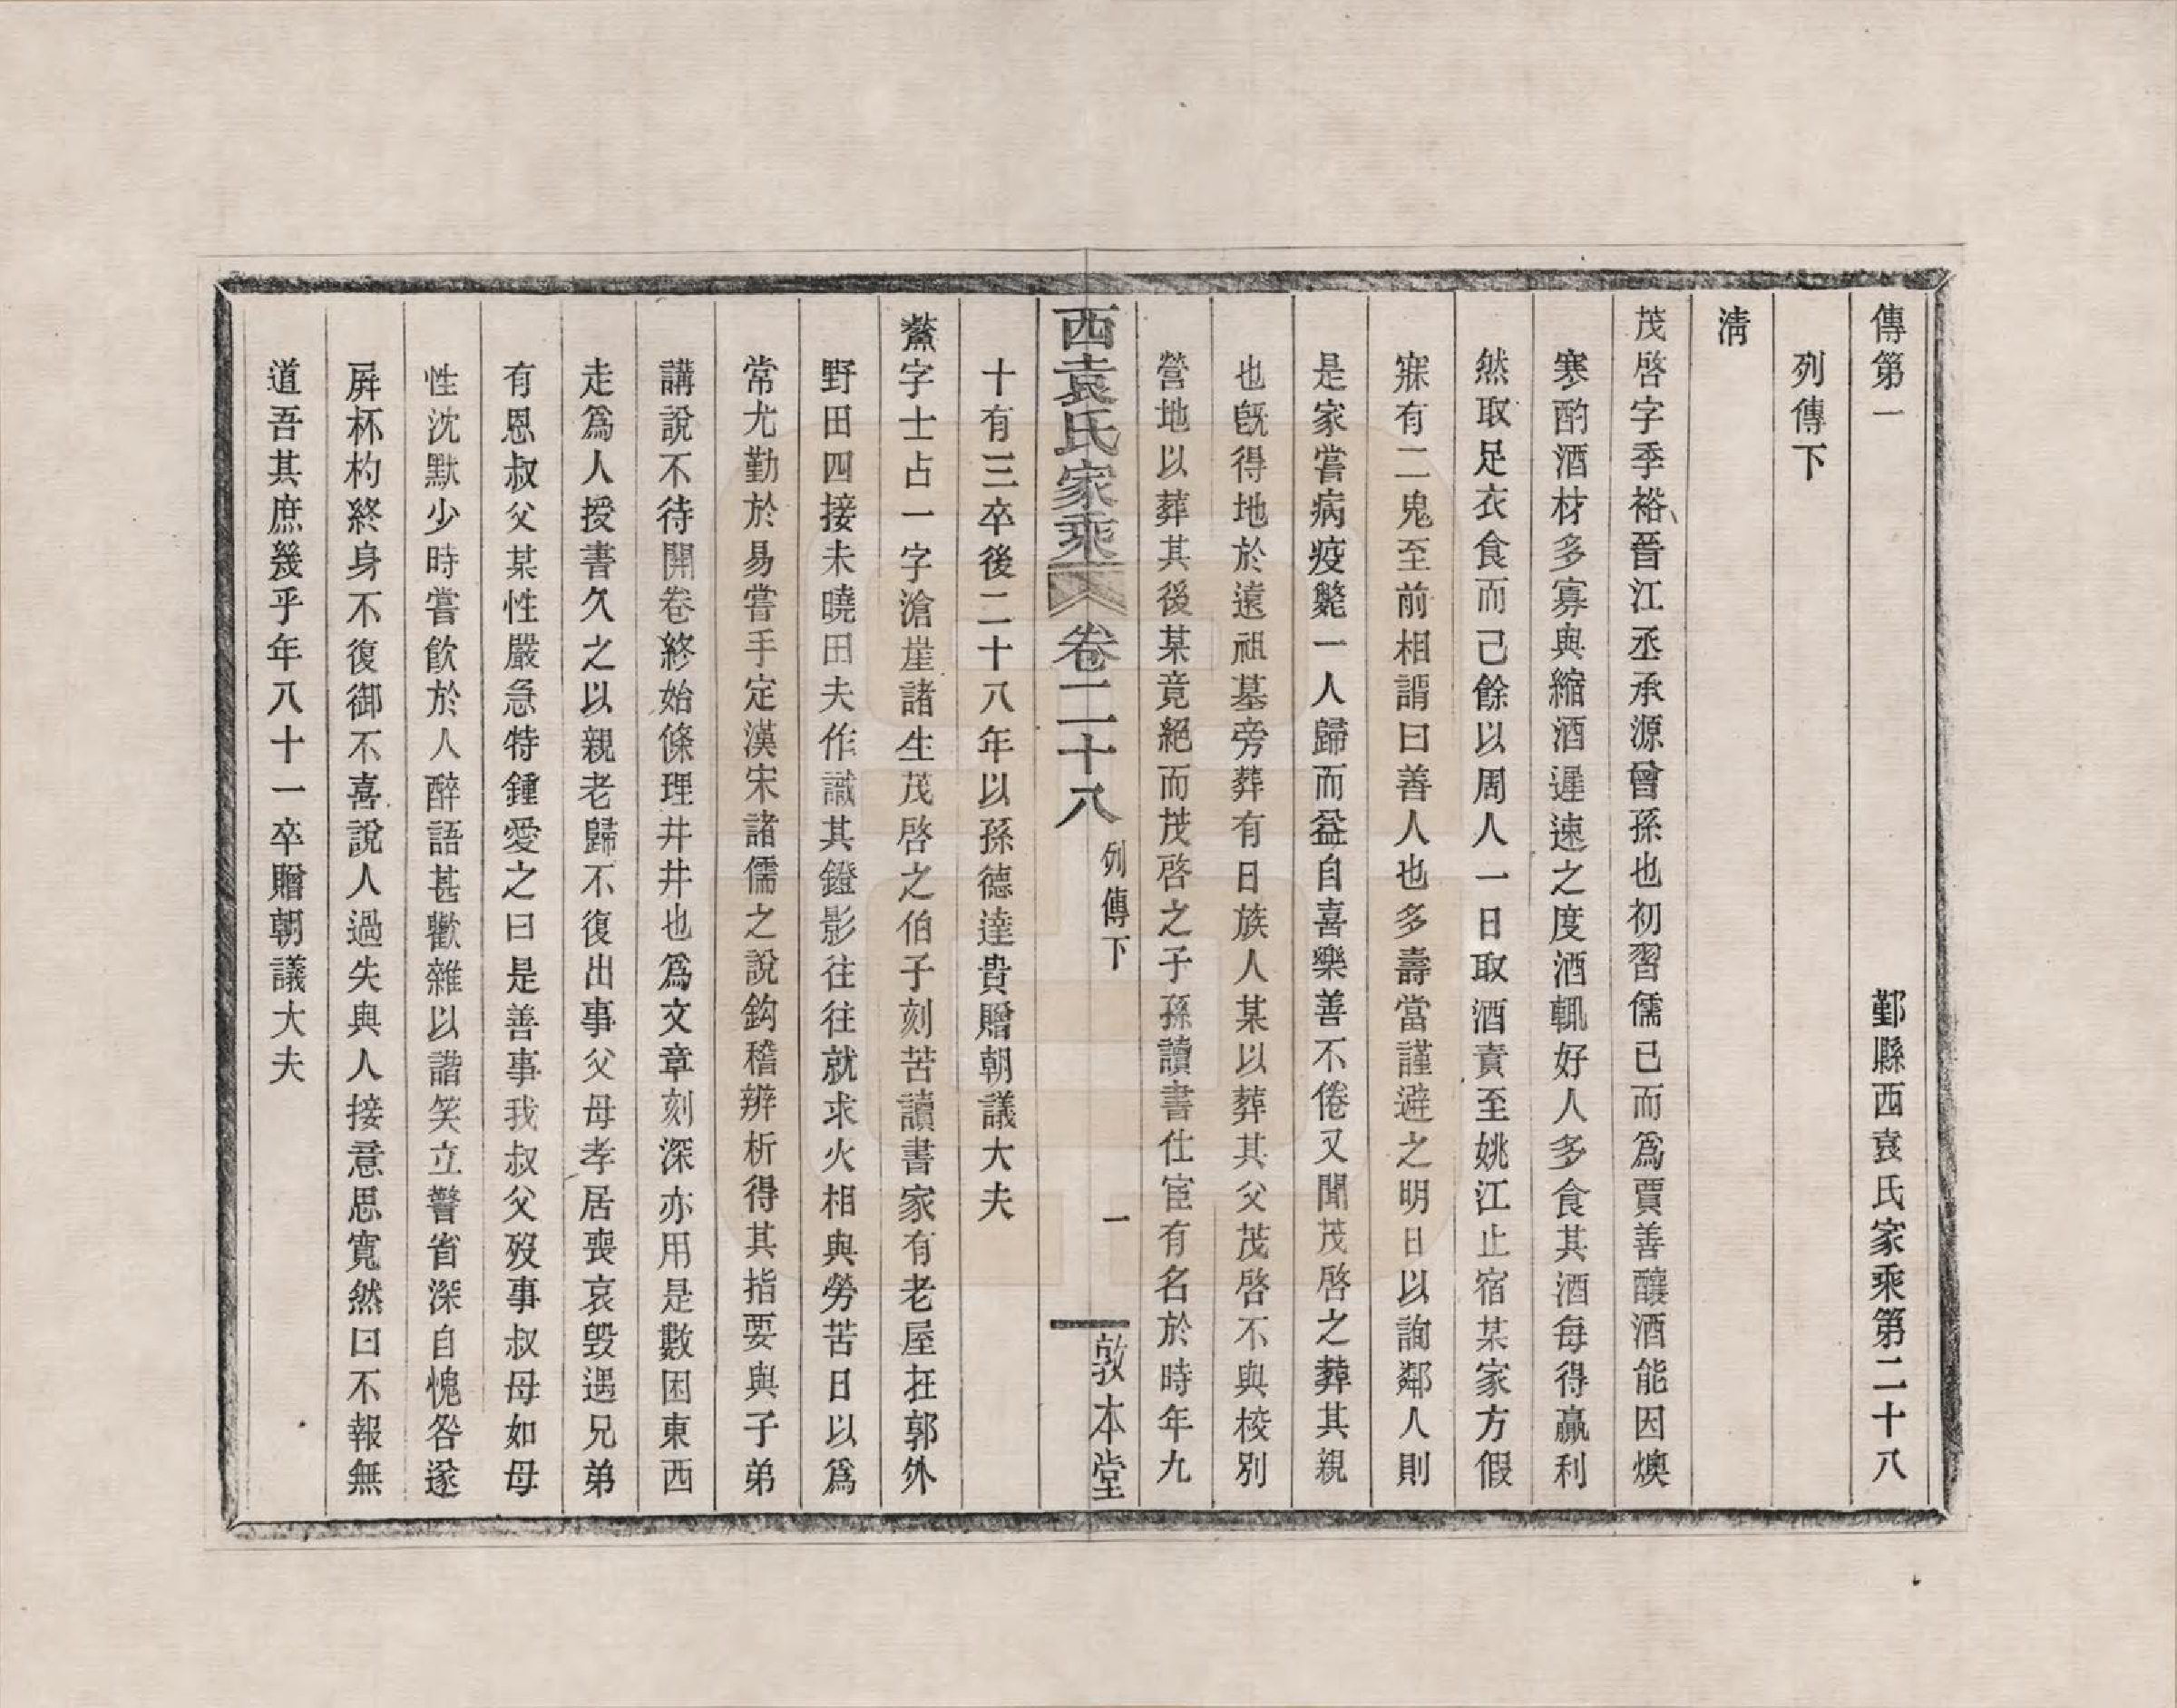 傳第一　鄞縣西袁氏家乘第二十八
列傳下
清
茂啓字季裕晉江丞承源曾孫也初習儒已而爲賈善釀酒能因燠
寒酌酒材多寡與縮酒遲速之度酒輒好人多食其酒每得贏利
然取足衣食而已餘以周人一日取酒責至姚江止宿某家方假
寐有二鬼至前相謂曰善人也多壽當謹避之明日以詢鄰人則
是家嘗病疫斃一人歸而益自喜樂善不倦又聞茂啓之葬其親
也旣得地於遠祖墓旁葬有日族人某以葬其父茂啓不與校別
營地以葬其後某竟絕而茂啓之子孫讀書仕宦有名於時年九
西袁氏家乘　卷二十八　列傳下　一　敦本堂
十有三卒後二十八年以孫德達貴贈朝議大夫
字士占一字滄崖諸生茂啓之伯子刻苦讀書家有老屋在郭外
野田四接未曉田夫作識其鐙影往往就求火相與勞苦日以爲
常尤勤於易嘗手定漢宋諸儒之說鈎稽辨析得其指要與子弟
講說不待開卷終始條理井井也爲文章刻深亦用是數困東西
走爲人授書久之以親老歸不復出事父母孝居喪哀毀遇兄弟
有恩叔父某性嚴急特鍾愛之曰是善事我叔父歿事叔母如母
性沈默少時嘗飮於人醉語甚歡雜以諧笑立警省深自愧咎遂
屛杯杓終身不復御不喜說人過失與人接意思寬然曰不報無
道吾其庶幾乎年八十一卒贈朝議大夫